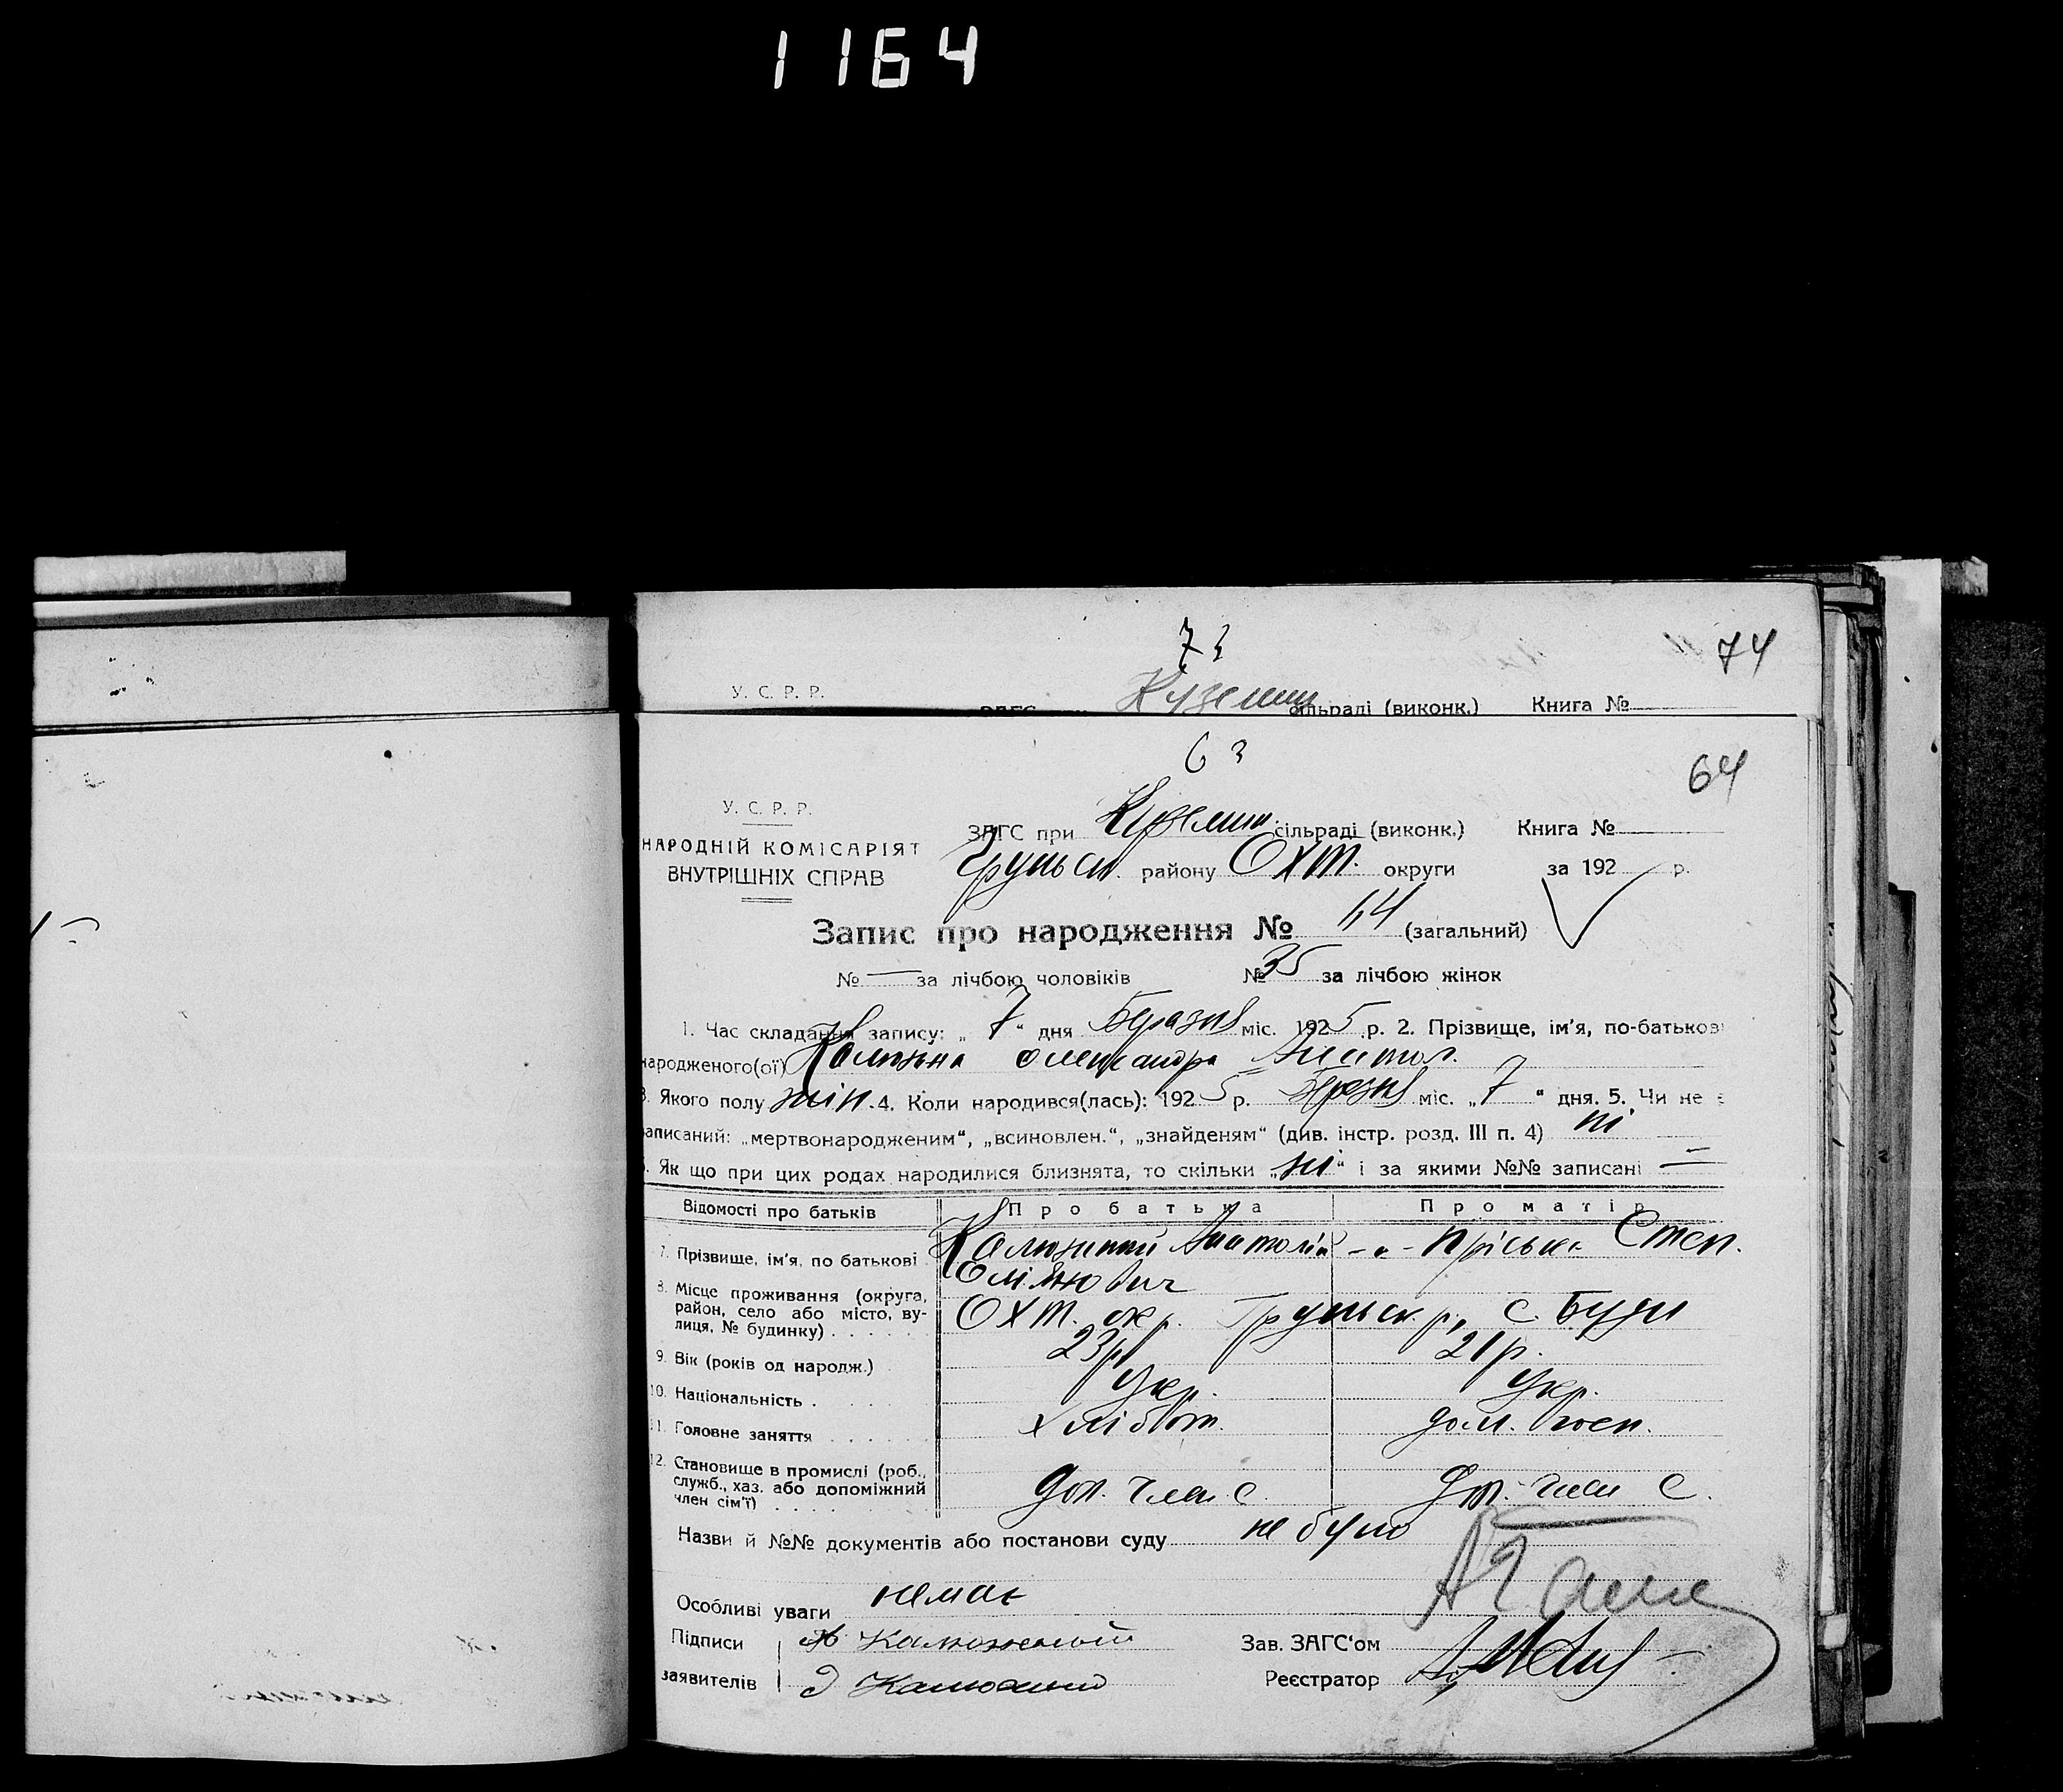 1164
74
У. С. Р. Р.
Куземин сільраді (виконк.) Книга №
63
64
У. С. Р. Р.
НАРОДНІЙ КОМІСАРІЯТ
ВНУТРІШНІХ СПРАВ
ЗАГС при Куземин. сільраді (виконк.) Книга №
Грунськ. району ОХТ. округи за 192 р.
Запис про народження № 64 (загальний)
№ — за лічбою чоловіків № 35 за лічбою жінок
1. Час складання запису: „ 7 “ дня Березня міс. 1925 р. 2. Прізвище, ім'я, по-батькові
народженого(ої) Калюжна Олександра Анатол.
3. Якого полу жін. 4. Коли народився(лась): 1925 р. Березня міс. „ 7 “ дня. 5. Чи не є
записаний: „мертвонародженим“, „всиновлен.“, „знайденям“ (див. інстр. розд. III п. 4) ні
6. Як що при цих родах народилися близнята, то скільки „ні“ і за якими №№ записані —
Відомості про батьків Про батька Про матір
7. Прізвище, ім'я, по батькові Калюжний Анатолій -„- Пріська Степ.
Омелянович
8. Місце проживання (округа, район, село або місто, вулиця, № будинку) ОХТ. окр. Грунськ. р., с. Буди
9. Вік (років од народж.) 23 р. 21 р.
10. Національність . Укр. Укр.
11. Головне заняття хлібор. дом. госп.
12. Становище в промислі (роб., служб., хаз. або допоміжний член сім'ї) доп. член с. доп. член с.
Назви й №№ документів або постанови суду не було
Особливі уваги немає
Підписи А Калюжный Зав. ЗАГС'ом
заявителів Э Калюжний Реєстратор